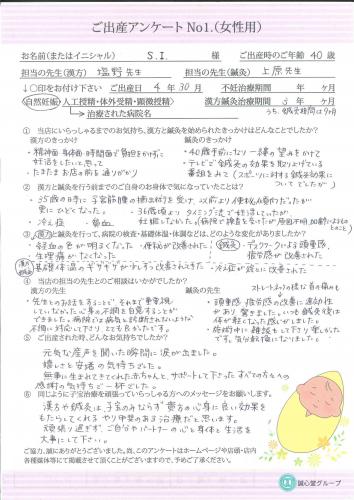 ご出産アンケート No1.(女性用)
お名前(またはイニシャル) S.I. 様 ご出産時のご年齢 40 歳
担当の先生(漢方) 塩野先生 担当の先生(鍼灸) 上原先生
↓〇印をお付け下さい ご出産日 4 年 30 月 不妊治療期間 年 ヶ月
自然妊娠・人工授精・体外受精・顕微授精 漢方鍼灸治療期間 3 年 ヶ月
→治療された病院名 うち、鍼灸期間は9ヶ月
① 当店にいらっしゃるまでのお気持ち、漢方と鍼灸を始められたきっかけはどんなことでしたか?
漢方のきっかけ 鍼灸のきっかけ
・精神面・身体面・時間面で負担をかけずに ・40歳手前になり一縷の望みをかけて
妊活をしたいと思って ・テレビで鍼灸の効果を取り上げている
・たまたまお店の前を通りがかり 番組をみて(スポーツに対する鍼灸効果に
ついてでしたが)
② 漢方と鍼灸を行う前までのご自身のお身体で気になっていたことは?
・35歳の時に子宮筋腫の摘出術を受け、以前より便秘傾向だったが
更にひどくなった。 ・36歳頃よりタイミング法で妊活していたが
・冷え症 ・貧血 妊娠しなかった(病院で検査を受けたが原因不明、加齢によるもの
とのこと)
③ 漢方と鍼灸を行って、病院の検査・基礎体温・体調などは、どのような変化がありましたか?
漢方 ・経血の色が明るくなった ・便秘が改善された 鍼灸 ・デスクワークによる頭重感、
・生理痛がなくなった 疲労感が改善された
漢方鍼灸 ・基礎体温のギザギザが少しずつ改善されてきた ・冷え症が緩らに改善された
④ 当店の担当の先生とのご相談はいかがでしたか?
漢方の先生 鍼灸の先生 ストレートネックの様な首の痛みも
・先生とのお話をすることで、それまで重要視 ・頭重感・疲労感の改善に速効性
していなかった心身の不調を自覚することが があり驚きました。いつも鍼灸後は
できました。病院では病気と診断されないような 体が軽くなった感じがしました。
不調に対応して下さり、とても良かったです。 ・施術中に雑談をして下さり楽しかった
です。気分転換になりました。
⑤ ご出産された時、どんなお気持ちでしたか?
元気な産声を聞いた瞬間に涙が出ました。
嬉しさと安堵の気持ちでした。
無事に生まれてきてくれた赤ちゃんと、サポートして下さったすべての方々への
感謝の気持ちで一杯でした。
⑥ 同じように子宝治療を頑張っていらっしゃる方へのメッセージをお願いします。
漢方や鍼灸は、子宝のみならず、貴方の心身に良い効果を
もたらしてくれる、やり甲斐のある治療だと思います。
頑張り過ぎず、ご自分やパートナーの心と身体と生活を
大事にして下さい。
ご協力、誠にありがとうございました。尚、このアンケートはホームページや店頭・店内
各種媒体等にて掲載させて頂くことがございますので、予めご了承ください。
誠心堂グループ